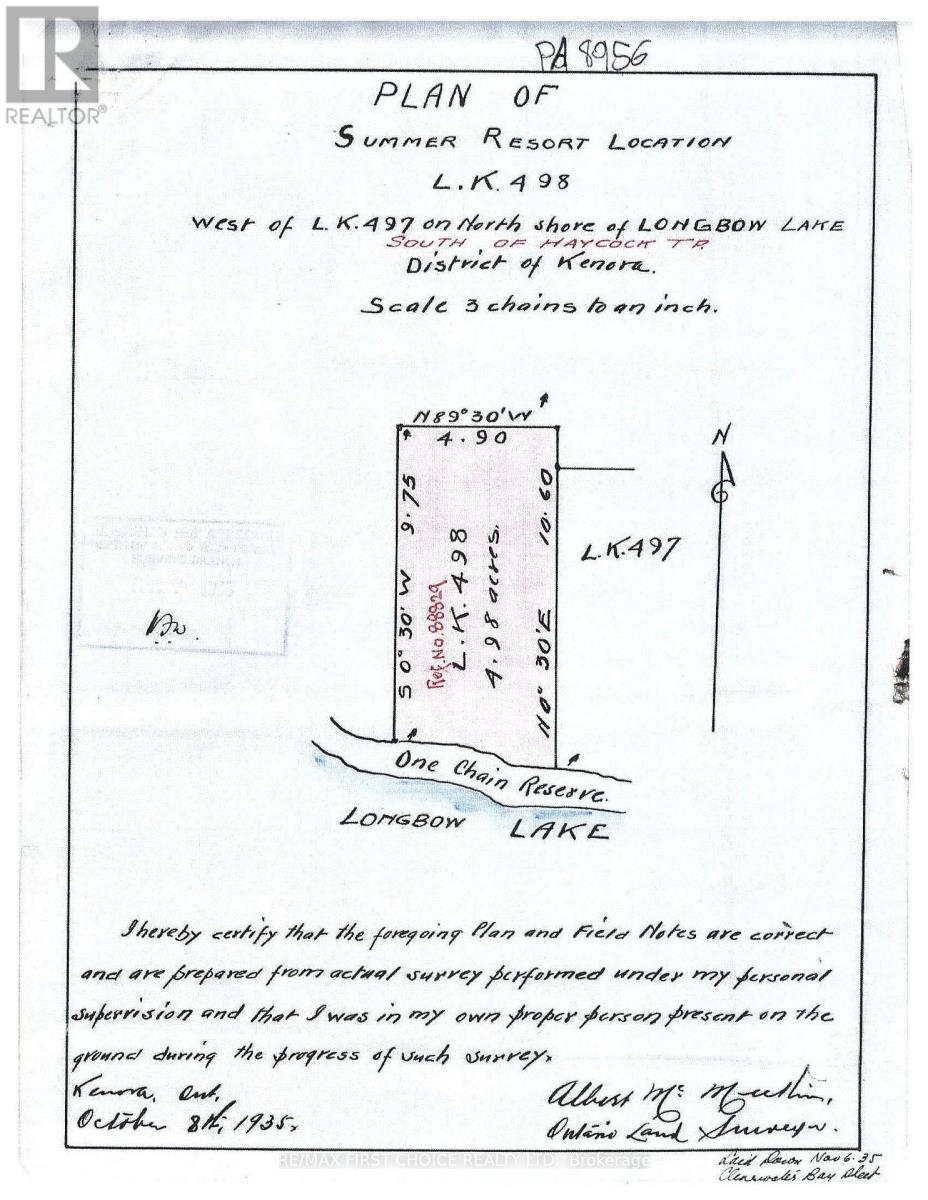 PA 8956
REALTOR®
PLAN OF
SUMMER RESORT LOCATION
L.K. 498
West of L.K.497 on North shore of LONGBOW LAKE
SOUTH OF HAYCOCK TP.
District of Kenora.
Scale 3 chains to an inch.
N89°30'W
4.90
N
S 0° 30' W 9.75
Ref. No. 88829
L.K. 498
4.98 acres.
N 0° 30' E 10.60
L.K.497
One Chain Reserve.
LONGBOW LAKE
I hereby certify that the foregoing Plan and Field Notes are correct
and are prepared from actual survey performed under my personal
supervision and that I was in my own proper person present on the
ground during the progress of such survey.
Kenora, Ont,
October 8th, 1935.
Albert Mc
Ontario Land Surveyor.
RE/MAX FIRST CHOICE REALTY LTD. Brokerage
Laid Down Nov 6-35
Clearwater Bay Sheet